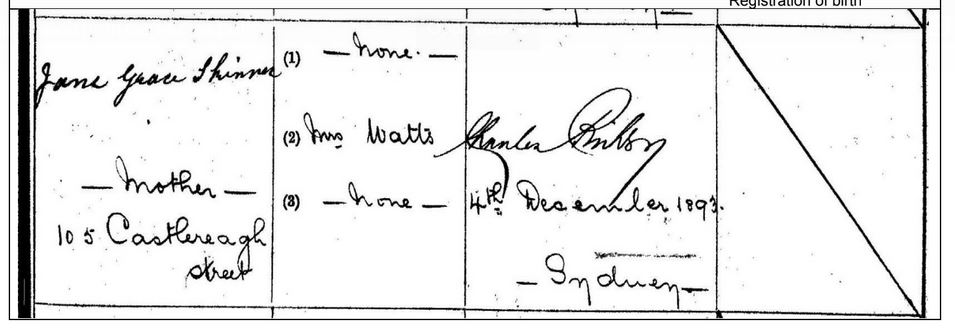 Registration of birth
Jane Grace Skinner
— Mother —
105 Castlereagh
street
(1) — None. —
(2) Mrs Watts
(3) — None —
Charles
4th December 1893.
— Sydney —